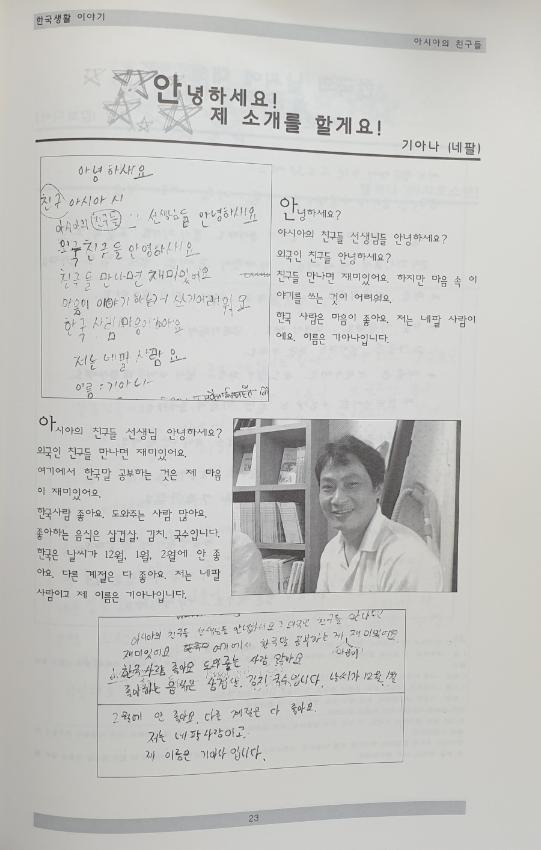 한국생활 이야기
아시아의 친구들
안녕하세요!
제 소개를 할게요!
기아나 (네팔)
아녕하새요
친구 아시아 시
아시아의 친구들 선생님들 안녕하세요
외국 친구들 안영하세요
친구들 만나면 재미있어요
한국 사람 마음이 좋아요
저는 네팔 사람 요
이름 : 기아나
안녕하세요?
아시아의 친구들 선생님들 안녕하세요?
외국인 친구들 안녕하세요?
친구들 만나면 재미있어요. 하지만 마음 속 이
야기를 쓰는 것이 어려워요.
한국 사람은 마음이 좋아요. 저는 네팔 사람이
에요. 이름은 기아나입니다.
아시아의 친구들 선생님 안녕하세요?
외국인 친구들 만나면 재미있어요.
여기에서 한국말 공부하는 것은 제 마음
이 재미있어요.
한국사람 좋아요. 도와주는 사람 많아요.
좋아하는 음식은 삼겹살, 김치, 국수입니다.
한국은 날씨가 12월, 1월, 2월에 안 좋
아요. 다른 계절은 다 좋아요. 저는 네팔
사람이고 제 이름은 기아나입니다.
아시아의 친구들 선생님들 안녕하세요? 외국인 친구들 만나면
재미있어요 여기에서 한국말 공부하는 게 재미있어요
한국사람 좋아요 도와주는 사람 많아요
좋아하는 음식은 삼겹살. 김치 국수입니다. 날씨가 12월, 1월
2월에 안 좋아요. 다른 계절은 다 좋아요.
저는 네팔사람이고
제 이름은 기아나입니다.
23